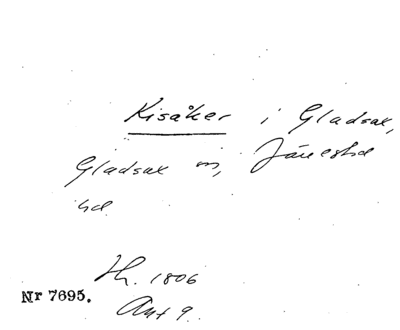 Kisåker i Gladsax,
Gladsax sn, Järrestad
hd.
Hh. 1806
Nr 7695.
Akt 9.